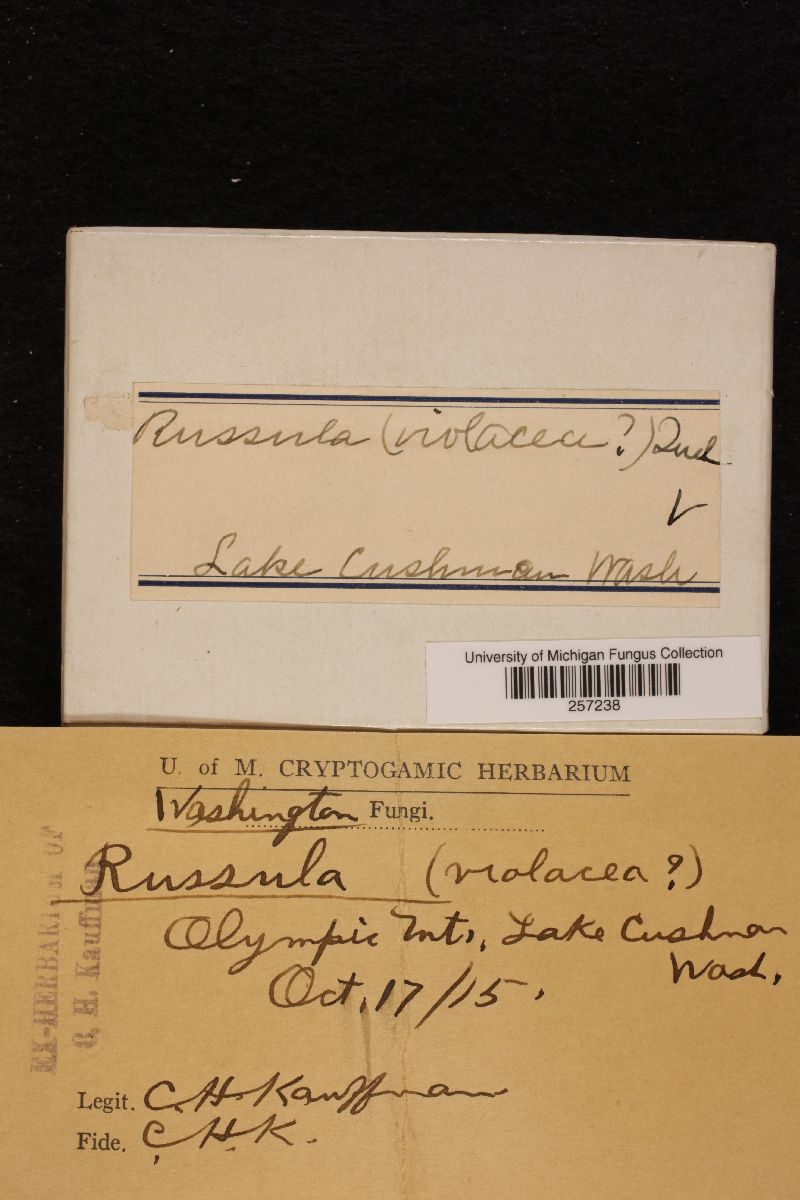 Russula (violacea?) 2nd
Lake Cushman Wash
University of Michigan Fungus Collection
257238
U. of M. CRYPTOGAMIC HERBARIUM
Washington Fungi.
Russula (violacea?)
Olympic Mts., Lake Cushman
Wash.
Oct. 17/15.
EX-HERBARIUM OF
C. H. Kauffman
Legit. C. H. Kauffman
Fide. C. H. K.